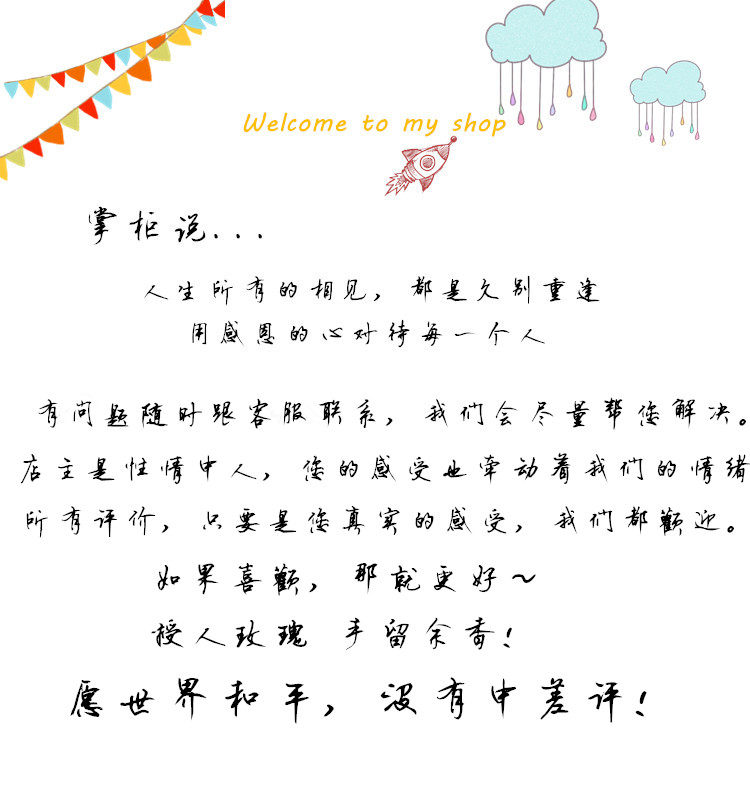 Welcome to my shop
掌柜说...
人生所有的相见，都是久别重逢
用感恩的心对待每一个人
有问题随时跟客服联系，我们会尽量帮您解决。
店主是性情中人，您的感受也牵动着我们的情绪
所有评价，只要是您真实的感受，我们都歡迎。
如果喜歡，那就更好~
授人玫瑰 手留余香！
愿世界和平，没有中差评！